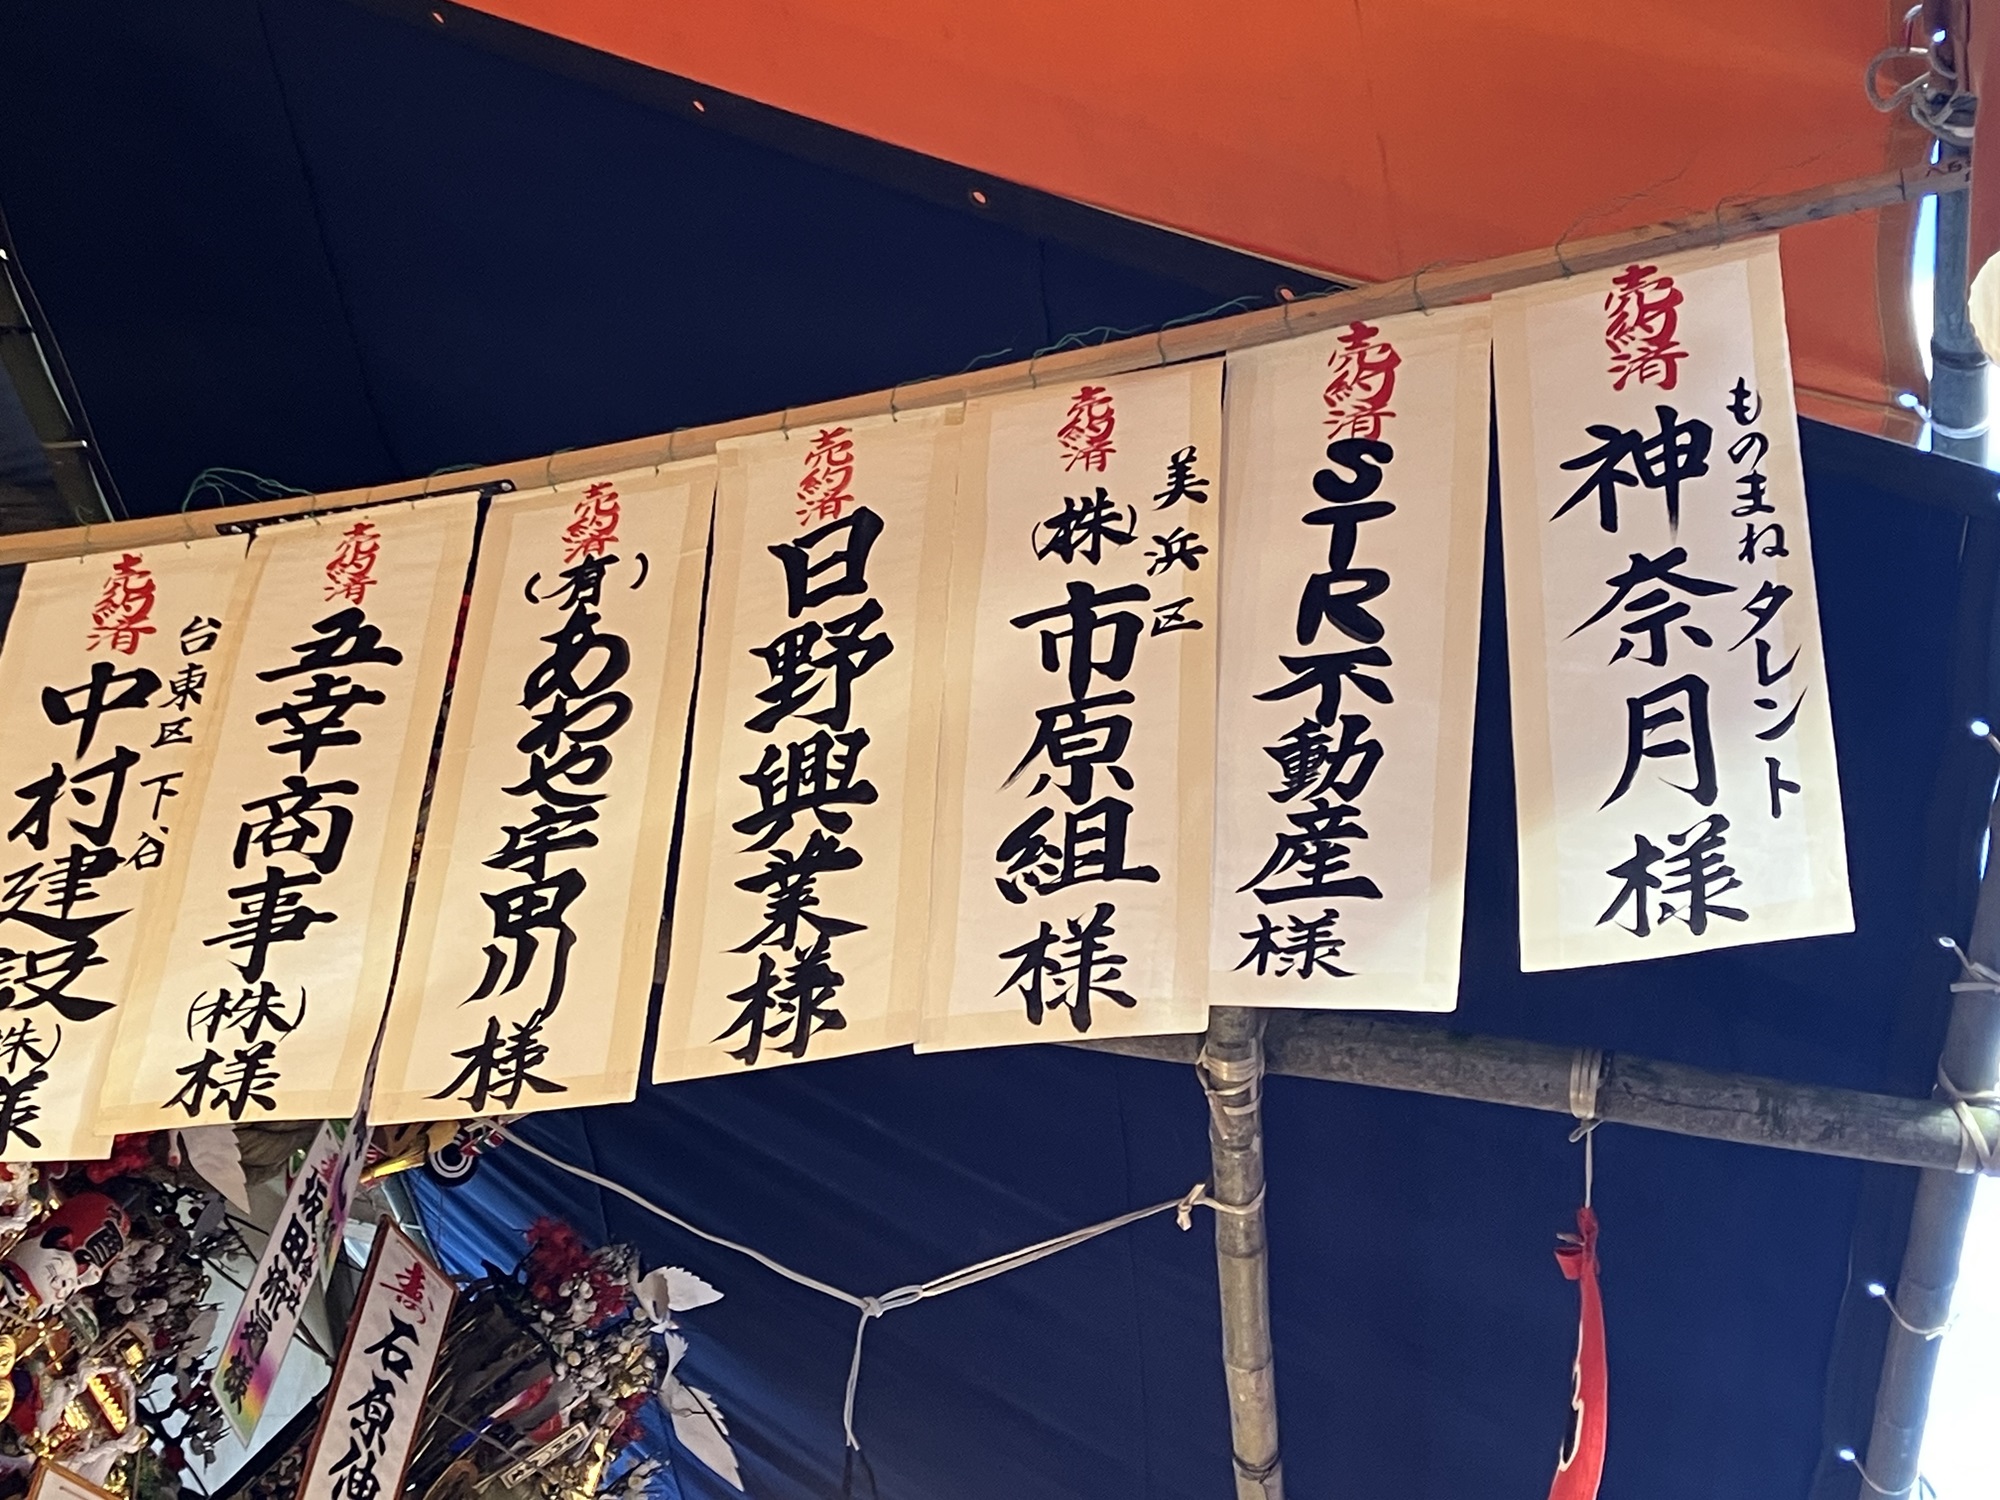 売約済
ものまねタレント
神奈月様
売約済
STR不動産様
売約済
美浜区
(株)市原組様
売約済
日野興業様
売約済
(有)あわや宇男川様
売約済
五幸商事(株)様
売約済
台東区下谷
中村建設(株)様
石原